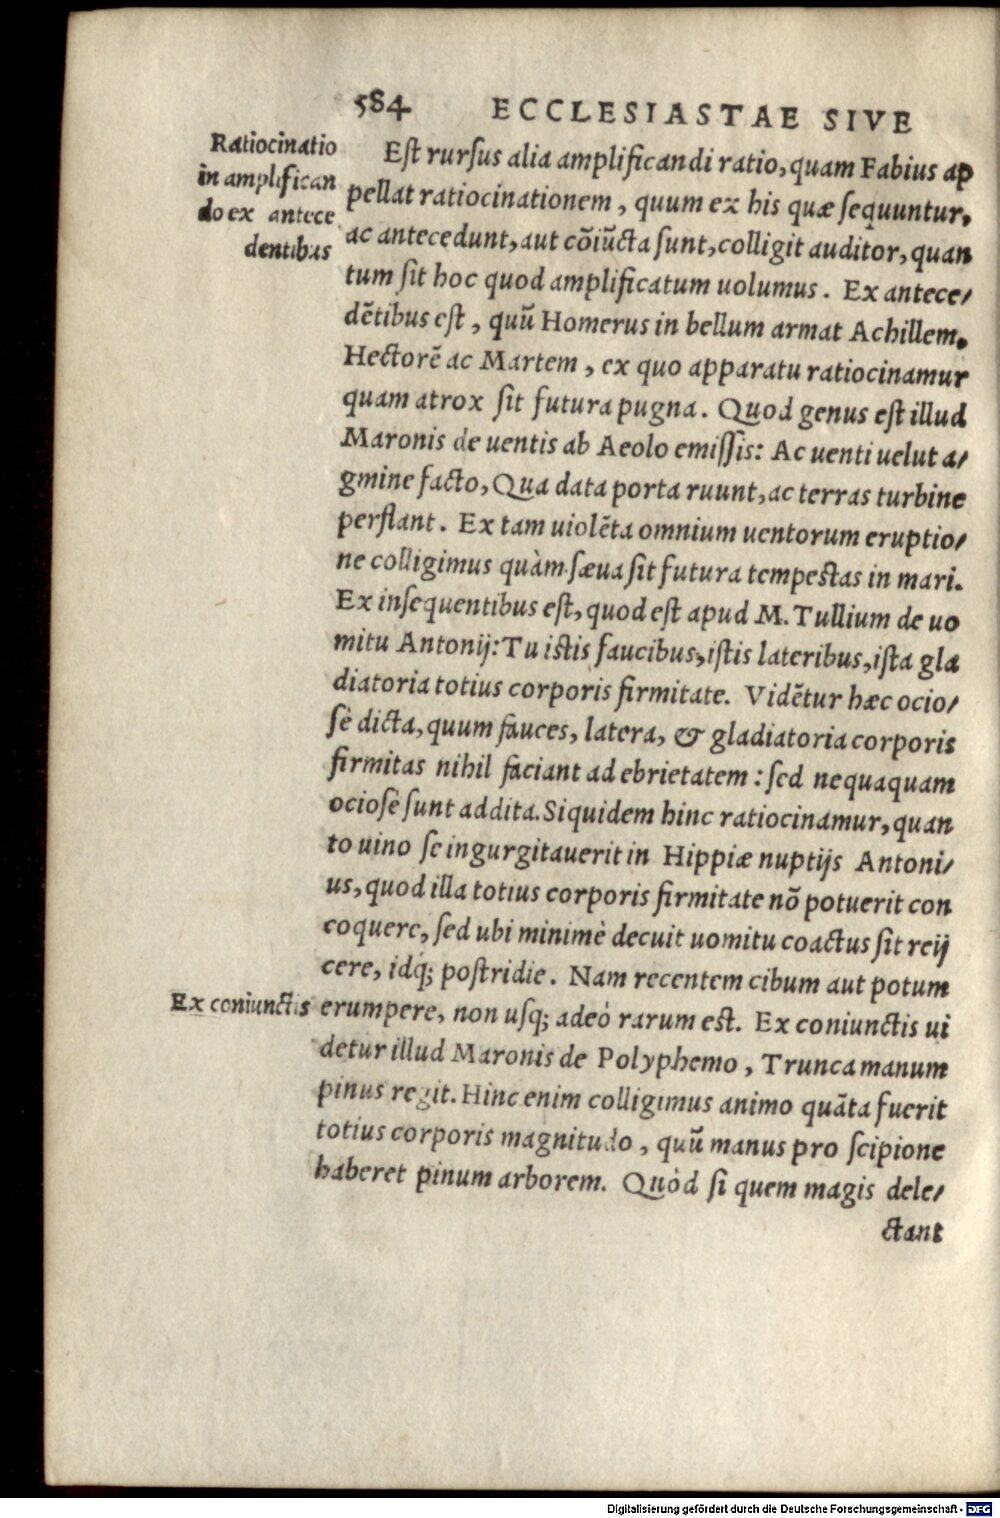 584 ECCLESIASTAE SIVE
Ratiocinatio
in amplifican
do ex antece
dentibus
Est rursus alia amplificandi ratio, quam Fabius ap
pellat ratiocinationem, quum ex his quæ sequuntur,
ac antecedunt, aut cõiũcta sunt, colligit auditor, quan
tum sit hoc quod amplificatum uolumus. Ex antece/
dẽtibus est, quũ Homerus in bellum armat Achillem,
Hectorẽ ac Martem, ex quo apparatu ratiocinamur
quam atrox sit futura pugna. Quod genus est illud
Maronis de uentis ab Aeolo emissis: Ac uenti uelut a/
gmine facto, Qua data porta ruunt, ac terras turbine
perflant. Ex tam uiolẽta omnium uentorum eruptio/
ne colligimus quàm sæua sit futura tempestas in mari.
Ex insequentibus est, quod est apud M. Tullium de uo
mitu Antonij: Tu istis faucibus, istis lateribus, ista gla
diatoria totius corporis firmitate. Vidẽtur hæc ocio/
sè dicta, quum fauces, latera, & gladiatoria corporis
firmitas nihil faciant ad ebrietatem: sed nequaquam
ociosè sunt addita. Siquidem hinc ratiocinamur, quan
to uino se ingurgitauerit in Hippiæ nuptijs Antoni/
us, quod illa totius corporis firmitate nõ potuerit con
coquere, sed ubi minimè decuit uomitu coactus sit reij
cere, idq́; postridie. Nam recentem cibum aut potum
Ex coniunctis
erumpere, non usq; adeò rarum est. Ex coniunctis ui
detur illud Maronis de Polyphemo, Trunca manum
pinus regit. Hinc enim colligimus animo quãta fuerit
totius corporis magnitudo, quũ manus pro scipione
haberet pinum arborem. Quòd si quem magis dele/
ctant
Digitalisierung gefördert durch die Deutsche Forschungsgemeinschaft - DFG